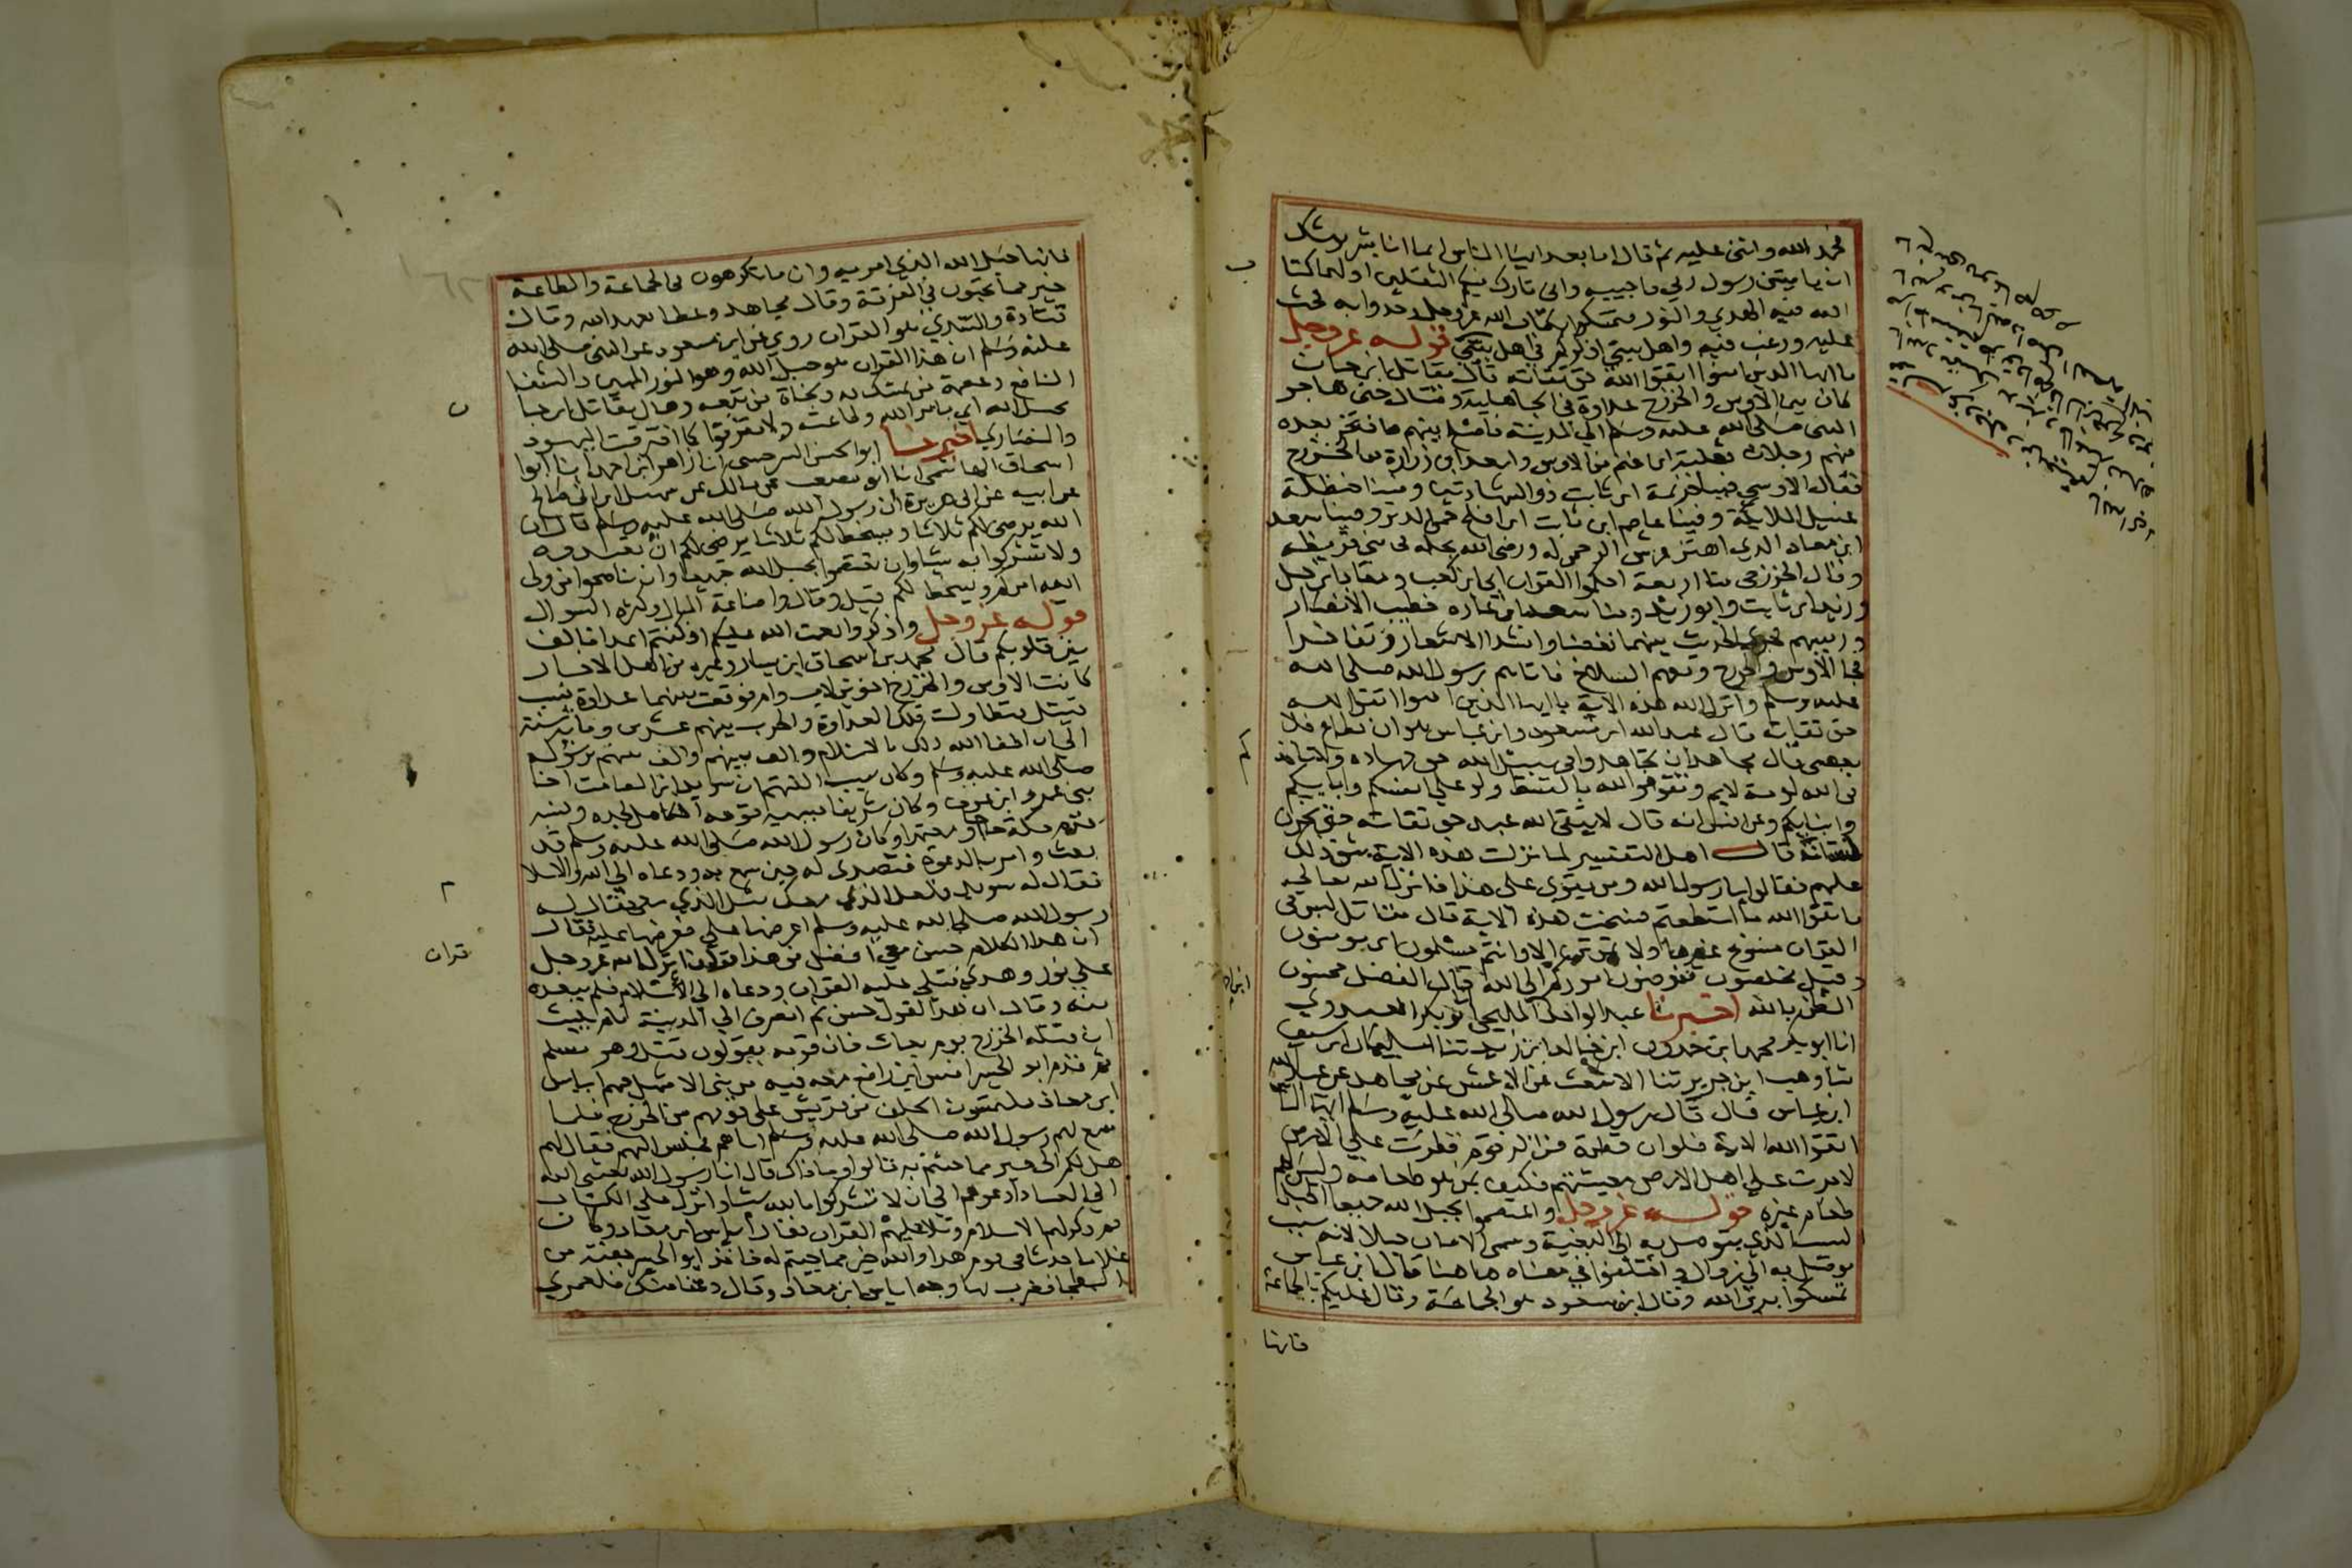 فحمد الله واثنى عليه ثم قال اما بعد ايها الناس انما انا بشر يوشك
ان ياتيني رسول ربي فاجيبه واني تارك فيكم الثقلين اولهما كتاب
الله فيه الهدي والنور فتمسكوا بكتاب الله عز وجل وخذوا به فحث
عليه ورغب فيه واهل بيتي اذكركم في اهل بيتي قوله عز وجل
يا ايها الذين امنوا اتقوا الله حق تقاته قال مقاتل ابن حيان
كان بين الاوس والخزرج عداوة في الجاهلية وقتال حتى هاجر
النبي صلى الله عليه وسلم الي المدينة فاصلح بينهم فافتخر بعده
منهم رجلان ثعلبة ابن غنم من الاوس واسعد ابن زرارة من الخزرج
فقال الاوسي منا خزيمة ابن ثابت ذو الشهادتين ومنا حنظلة
غسيل الملايكة وفينا عاصم ابن ثابت ابن افلح حمي الدبر وفينا سعد
ابن معاد الذي اهتز عرش الرحمن له ورضي الله بحكمه في بني قريظة
وقال الخزرجي منا اربعة احكموا القران ابي ابن كعب ومعاد ابن جبل
وزيد ابن ثابت وابو زيد ومنا سعد ابن عباده خطيب الانصار
وربيسهم فجري الحديث بينهما فغضبا وانشدا الاشعار وتفاخرا
فجا الاوس والخزرج ومعهم السلاح فاتاهم رسول الله صلى الله
عليه وسلم وانزل الله هذه الاية يا ايها الذين امنوا اتقوا الله
حق تقاته قال عبد الله ابن مسعود وابن عباس هو ان يطاع فلا
يعصى قال مجاهد ان تجاهدوا في سبيل الله حق جهاده ولا تاخذكم
في الله لومة لايم وتقوموا لله بالقسط ولو على انفسكم وابايكم
وابنايكم وعن انس انه قال لا يتقي الله عبد حق تقاته حتى يخزن
لسانه قال اهل التفسير لما نزلت هذه الاية شق ذلك
عليهم فقالوا يا رسول الله ومن يقوي على هذا فانزل الله تعالى
فاتقوا الله ما استطعتم فنسخت هذه الاية قال مقاتل ليس في
ال عمران منسوخ غيرها ولا تموتن الا وانتم مسلمون اي مومنون
وقيل مخلصون مفوضون اموركم الي الله قال الفضل محسنون
الظن بالله اخبرنا عبد الواحد المليحي ابو بكر العبدوي
انا ابو بكر محمد ابن حمدون ابن خالد ابن زيد ثنا سليمان ابن سيف
ثنا وهب ابن جرير ثنا الاعمش عن مجاهد عن عبد الله
ابن عباس قال قال رسول الله صلى الله عليه وسلم ايها الناس
اتقوا الله الاية فلو ان قطرة من الزقوم قطرت علي الارض
لامرت على اهل الارض معيشتهم فكيف بمن هو طعامه وليس لهم
طعام غيره قوله عز وجل واعتصموا بحبل الله جميعا الحبل
السبب الذي يتوصل به الى البغية وسمى الامان حبلا لانه سبب
يوصل به الي زوال واختلفوا في معناه هاهنا قال ابن عباس
تمسكوا بدين الله وقال ابن مسعود هو الجماعة وقال عليكم بالجماعة
فانها
فانها حبل الله الذي امر به وان ما تكرهون في الجماعة والطاعة
خير مما تحبون في الفرقة وقال مجاهد وعطا بعهد الله وقال
قتادة والسدي هو القران روي عن ابن مسعود عن النبي صلى الله
عليه وسلم ان هذا القران هو حبل الله وهو النور المبين والشفا
النافع وعصمة من تمسك به ونجاة من تبعه وقال مقاتل ابن حيا
بحبل الله اي بامر الله وطاعته ولا تفرقوا كما افترقت اليهود
والنصاري اخبرنا ابو الحسن السرخسي انا زاهر ابن احمد انا ابو
اسحاق الهاشمي انا ابو مصعب عن مالك عن سهيل ابن ابي صالح
عن ابيه عن ابي هريرة ان رسول الله صلى الله عليه وسلم قال ان
الله يرضى لكم ثلاثا ويسخط لكم ثلاثا يرضى لكم ان تعبدوه
ولا تشركوا به شيا وان تعتصموا بحبل الله جميعا وان تناصحوا من ولى
الله امركم ويسخط لكم قيل وقال واضاعة المال وكثرة السوال
قوله عز وجل واذكروا نعمت الله عليكم اذ كنتم اعدا فالف
بين قلوبكم قال محمد بن اسحاق ابن يسار وغيره من اهل الاخبار
كانت الاوس والخزرج اخوين لاب وام فوقعت بينهما عداوة بسبب
قتيل فتطاولت تلك العداوة والحرب بينهم عشرين ومائة سنة
الي ان اطفا الله ذلك بالاسلام والف بينهم والف بينهم برسوله
صلى الله عليه وسلم وكان سبب الفتهم ان سويد ابن الصامت اخا
بني عمرو ابن عوف وكان شريفا يسميه قومه الكامل لجلده ونسبه
قدم مكة حاجا او معتمرا وكان رسول الله صلى الله عليه وسلم قد
بعث وامر بالدعوة فتصدى له حين سمع به ودعاه الي الله والاسلا
فقال له سويد فلعل الذي معك مثل الذي معي فقال له
رسول الله صلى الله عليه وسلم اعرضها على فعرضها عليه فقال
ان هذا الكلام حسن معي افضل من هذا قران انزله الله عز وجل
علي نور وهدي فتلى عليه القران ودعاه الي الاسلام فلم يبعد
منه وقال ان هذا القول حسن ثم انصرف الي المدينة فلم يلبث
ان قتله الخزرج يوم بعاث فان قومه يقولون قتل وهو مسلم
ثم قدم ابو الحيسر انس ابن رافع معه فتية من بني الاشهل فيهم اياس
ابن معاذ يلتمسون الحلف من قريش على قومهم من الخزرج فلما
سمع بهم رسول الله صلى الله عليه وسلم اتاهم فجلس اليهم فقال لهم
هل لكم الى خير مما جئتم به قالوا وما ذاك قال انا رسول الله بعثني الله
الي العباد ادعوهم الي ان لا يشركوا بالله شيا وانزل علي الكتاب
ثم ذكر لهم الاسلام وتلا عليهم القران فقال اياس ابن معاذ وكان
غلاما حدثا اي قوم هذا والله خير مما جيتم له فاخذ ابو الحيسر حفنة من
البطحا فضرب بها وجه اياس ابن معاذ وقال دعنا منك فلعمري
قران